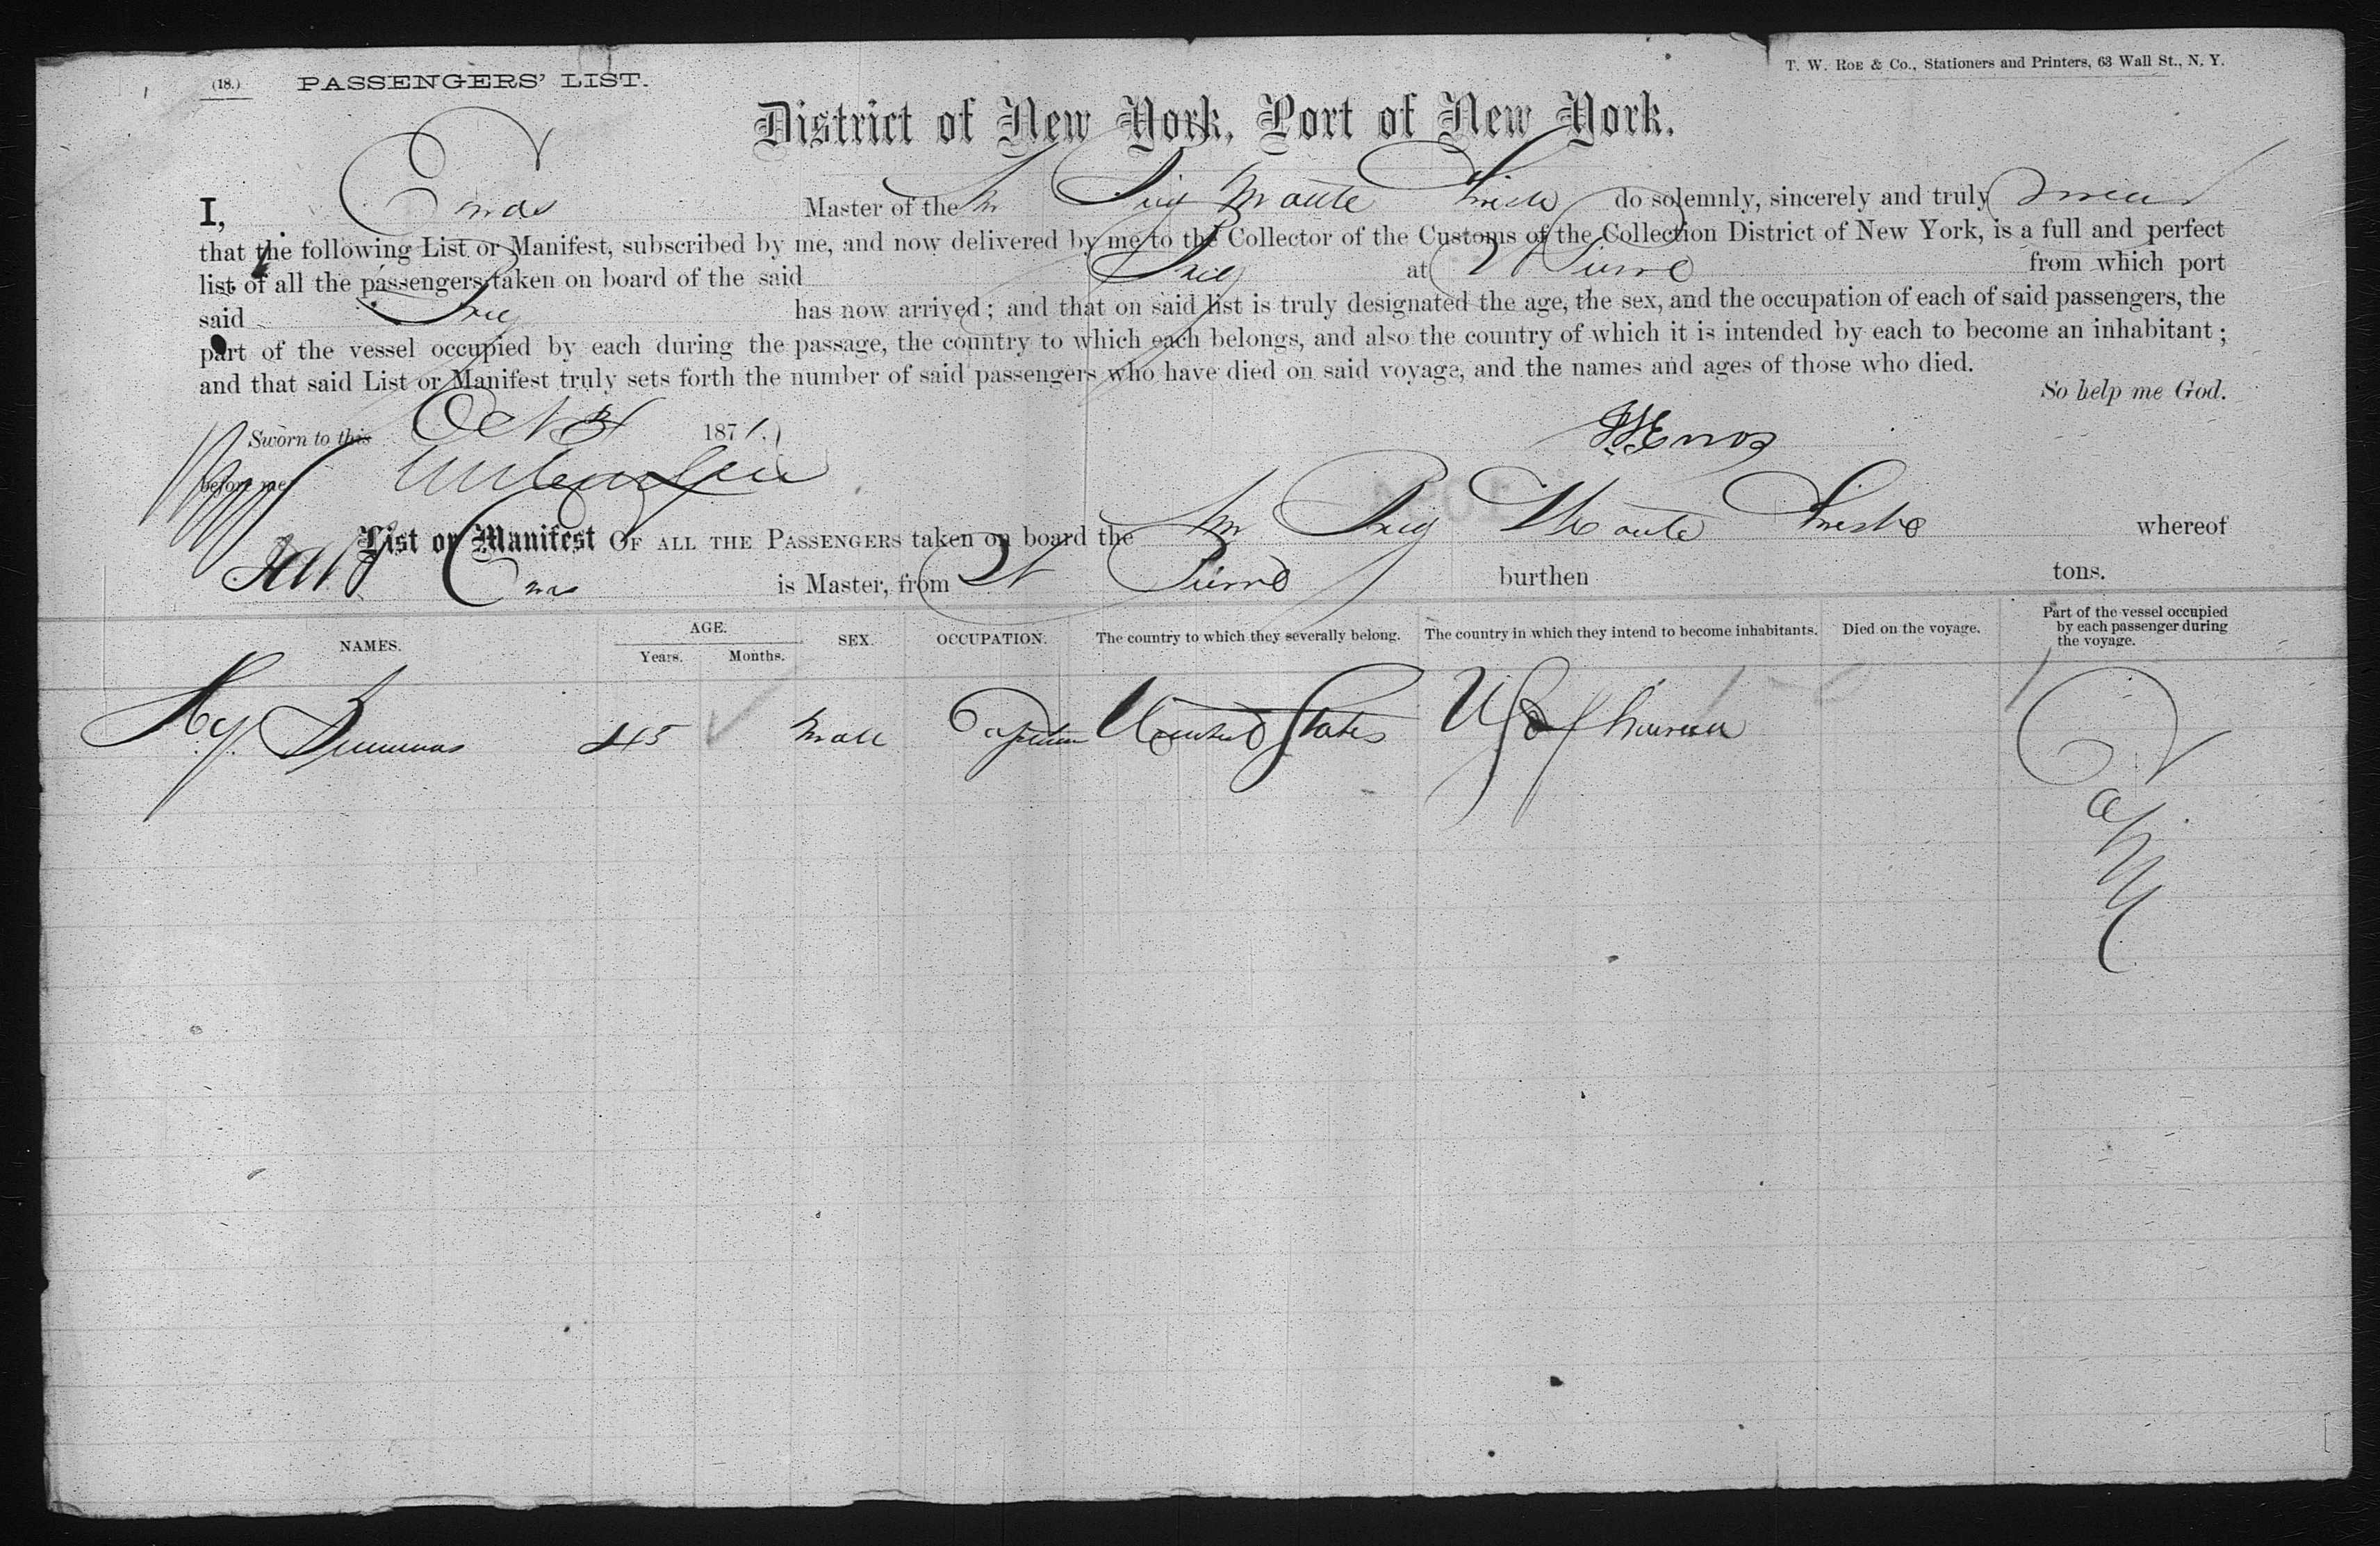 (18.) PASSENGERS' LIST.
T. W. ROE & Co., Stationers and Printers, 63 Wall St., N. Y.
District of New York, Port of New York.
I, Master of the Brig do solemnly, sincerely and truly swear
that the following List or Manifest, subscribed by me, and now delivered by me to the Collector of the Customs of the Collection District of New York, is a full and perfect
list of all the passengers taken on board of the said Brig at St Pierre from which port
said Brig has now arrived; and that on said list is truly designated the age, the sex, and the occupation of each of said passengers, the
part of the vessel occupied by each during the passage, the country to which each belongs, and also the country of which it is intended by each to become an inhabitant;
and that said List or Manifest truly sets forth the number of said passengers who have died on said voyage, and the names and ages of those who died.
So help me God.
Sworn to this Oct 1871.
before me
List or Manifest OF ALL THE PASSENGERS taken on board the Brig whereof
is Master, from St Pierre burthen tons.
NAMES. AGE. Years. Months. SEX. OCCUPATION. The country to which they severally belong. The country in which they intend to become inhabitants. Died on the voyage. Part of the vessel occupied by each passenger during the voyage.
Hy 45 Male Captain United States U S of America Cabin